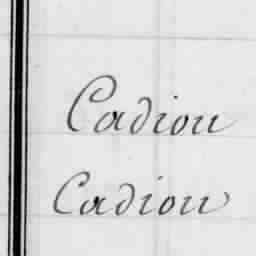 Cadiou
Cadiou